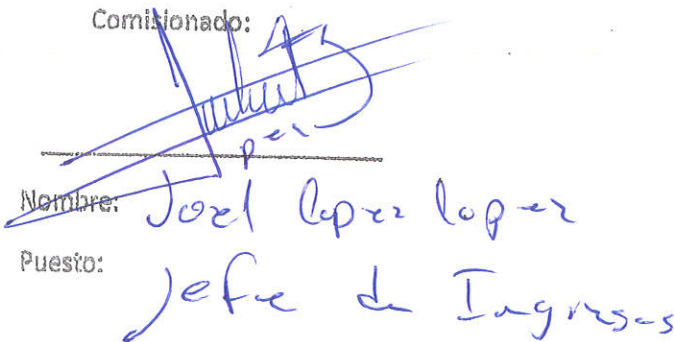 Comisionado:
Nombre: Joel Lopez Lopez
Puesto:
Jefe de Ingresos